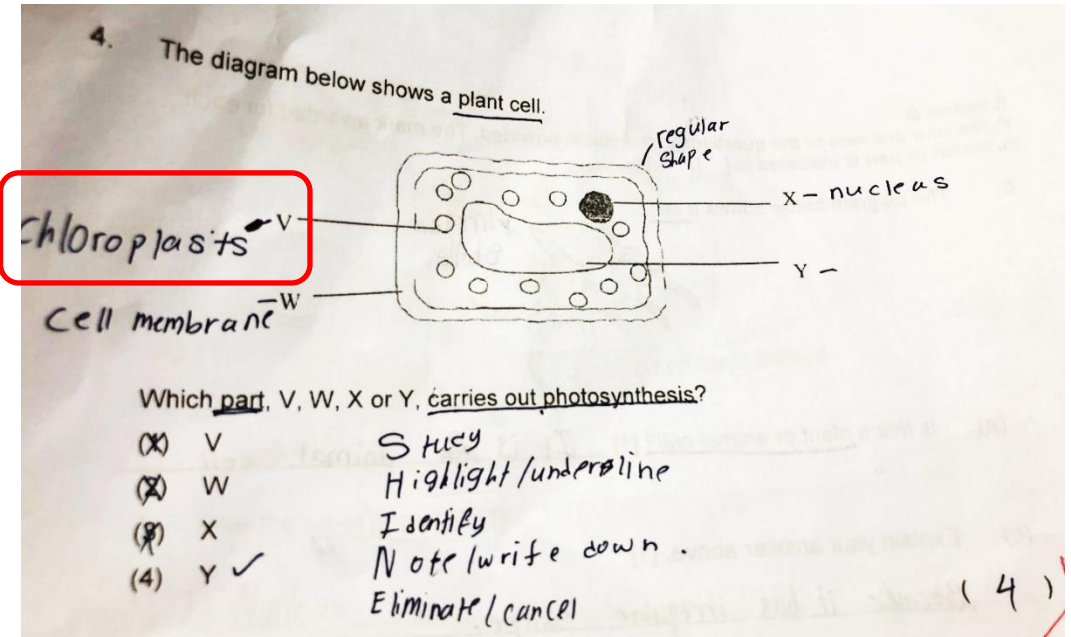 4. The diagram below shows a plant cell.
regular
shape
X - nucleus
Chloroplasts - V
Y -
Cell membrane - W
Which part, V, W, X or Y, carries out photosynthesis?
(1) V
(2) W
(3) X
(4) Y ✓
Study
Highlight/underline
Identify
Note/write down.
Eliminate/cancel
(4)